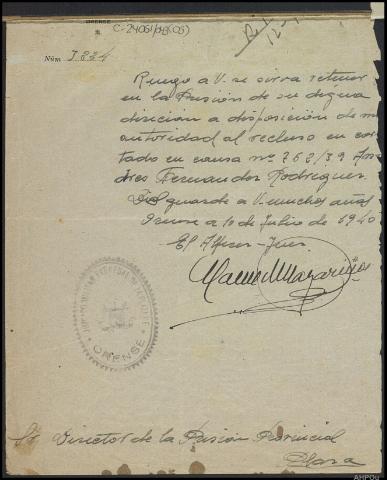 ORENSE
C-24051/48(05)
Núm 3834
Ruego a V. se sirva retener
en la Prisión de su digna
dirección a disposición de mi
autoridad al recluso en cor-
tado en causa nº 768/39 An-
drés Fernandez Rodriguez.
Dios guarde a V. muchos años
Orense a 10 de Julio de 1940
El Alferez-Juez
Manuel Mazariños
ORENSE
Sr Director de la Prisión Provincial
Plaza
AHPOu